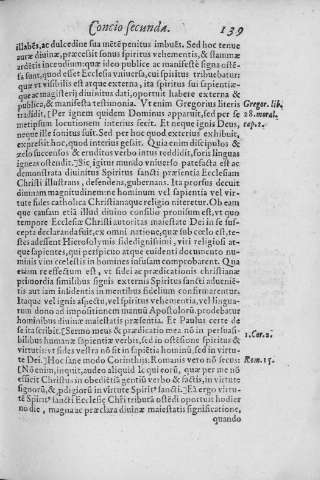 Concio secunda. 139
illabēs, ac dulcedine sua mētē penitus imbuēs. Sed hoc tenue
auræ diuinæ, præcessit sonus spiritus vehementis, & flammæ
ardētis incendium: quæ ideo publice ac manifestè signa ostē-
sa sunt, quod esset Ecclesia vniuersa, cui spiritus tribuebatur:
quæ vt visibilis est atque externa, ita spiritus sui sapientiæ-
que ac magisterij diuinitus dati, oportuit habere externa &
publica, & manifesta testimonia. Vt enim Gregorius literis Gregor. lib.
tradidit, [Per ignem quidem Dominus apparuit, sed per se 28. moral.
metipsum locutionem interius fecit. Et neque ignis Deus, cap. 2.
neque ille sonitus fuit. Sed per hoc quod exterius exhibuit,
expressit hoc, quod interius gessit. Quia enim discipulos &
zelo succensos & eruditos verbo intus reddidit, foris linguas
igneas ostendit.] Sic igitur mundo vniuerso patefacta est ac
demonstrata diuinitus Spiritus sancti præsentia Ecclesiam
Christi illustrans, defendens, gubernans. Ita prorsus decuit
diuinam magnitudinem ne hominum vel sapientia vel vir-
tute fides catholica Christianaque religio niteretur. Ob eam
que causam etiā illud diuino consilio prouisum est, vt quo
tempore Ecclesiæ Christi autoritas maiestate Dei in se sus-
cepta declaranda fuit, ex omni natione, quæ sub cœlo est, te-
stes adessent Hierosolymis fidedignissimi, viri religiosi at-
que sapientes, qui perspicuo atque euidenti documento nu-
minis vim cœlestis in homines infusam comprobarent. Qua
etiam re effectum est, vt fidei ac prædicationis christianæ
primordia similibus signis externis Spiritus sancti aduenie-
tis aut iam insidentis in mentibus fidelium confirmarentur.
Itaque vel ignis aspectu, vel spiritus vehementia, vel lingua-
rum dono ad impositionem manuū Apostolorū prodebatur
hominibus diuinæ maiestatis præsentia. Et Paulus certe de
se ita scribit. [Sermo meus & prædicatio mea nō in persuasi-
bilibus humanæ sapientiæ verbis, sed in ostēsione spiritus & 1. Cor. 2.
virtutis: vt fides vestra nō sit in sapiētia hominū, sed in virtu-
te Dei.] Hoc sane modo Corinthijs: Romanis vero nō secus: Rom. 15.
[Nō enim, inquit, audeo aliquid loqui eorū, quæ per me nō
efficit Christus in obedientiā gentiū verbo & factis, in virtute
signorū, & prodigiorū in virtute Spiritus sancti.] Ea ergo virtu-
te Spiritus sancti Ecclesiæ Christi tributa ostēdi oportuit hodier
no die, magna ac præclara diuinæ maiestatis significatione,
quando